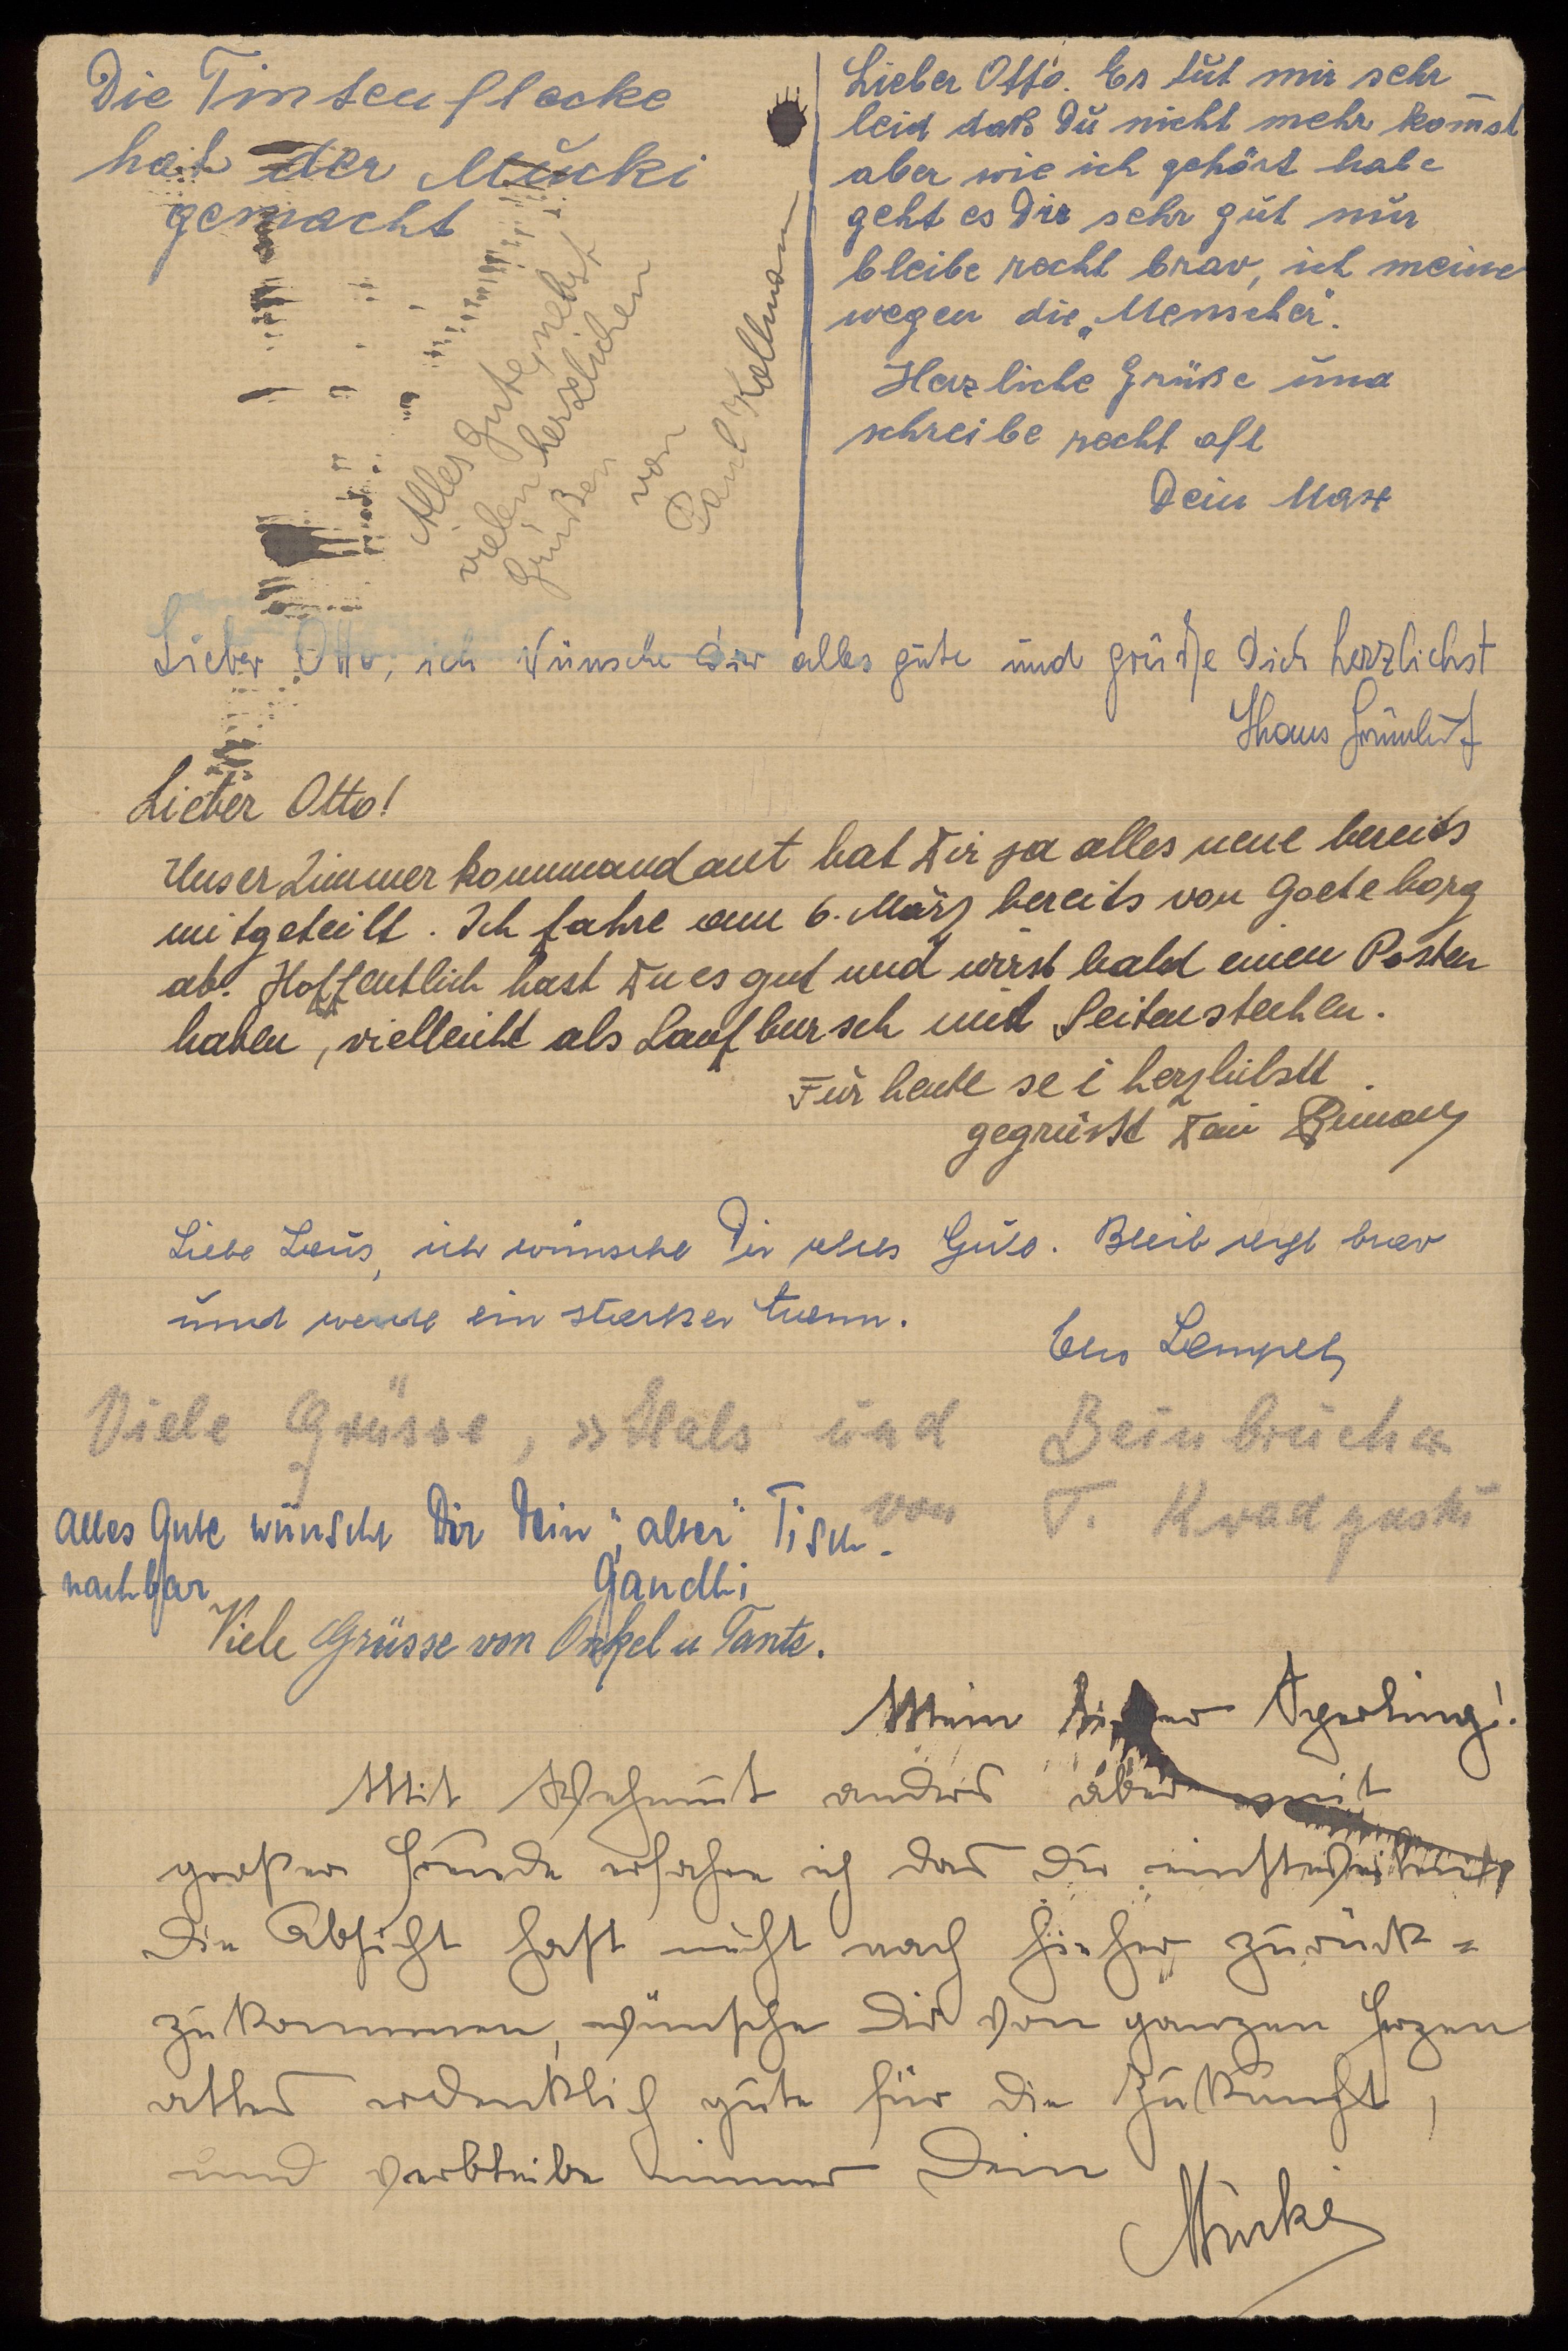 Die Tintenflecke
hat der Mucki
gemacht
Alles gute, nebst
vielen herzlichen
Grüßen
von
Paul Kollmann
Lieber Otto. Es tut mir sehr
leid daß Du nicht mehr komst
aber wie ich gehört habe
geht es Dir sehr gut nur
bleibe recht brav, ich meine
wegen die „Menscher".
Herzliche Grüße und
schreibe recht oft
Dein Max
Lieber Otto, ich wünsche Dir alles gute und grüße Dich herzlichst
Hans
Lieber Otto!
Unser Zimmerkommandant hat Dir ja alles neue bereits
mitgeteilt. Ich fahre am 6. März bereits von Goeteborg
ab. Hoffentlich hast Du es gut und wirst bald einen Posten
haben, vielleicht als Laufbursch mit Seitenstechen.
Für heute sei herzlichst
gegrüsst Dein
Liebe Laus, ich wünsche Dir alles Gute. Bleib recht brav
und werde ein starker Mann.
Lampel
Viele Grüsse, »Hals und Beinbruch«
von T.
Alles Gute wünscht Dir Dein „alter" Tisch-
nachbar Gandhi
Viele Grüsse von Onkel u Tante.
Mein lieber
Mit Wehmut anders aber mit
großer Freude erfahre ich das Du einstweilen
die Absicht hast nicht nach hieher zurück=
zukommen, wünsche Dir von ganzen Herzen
alles erdenklich gute für die Zukunft,
und verbleibe immer Dein
Mucki